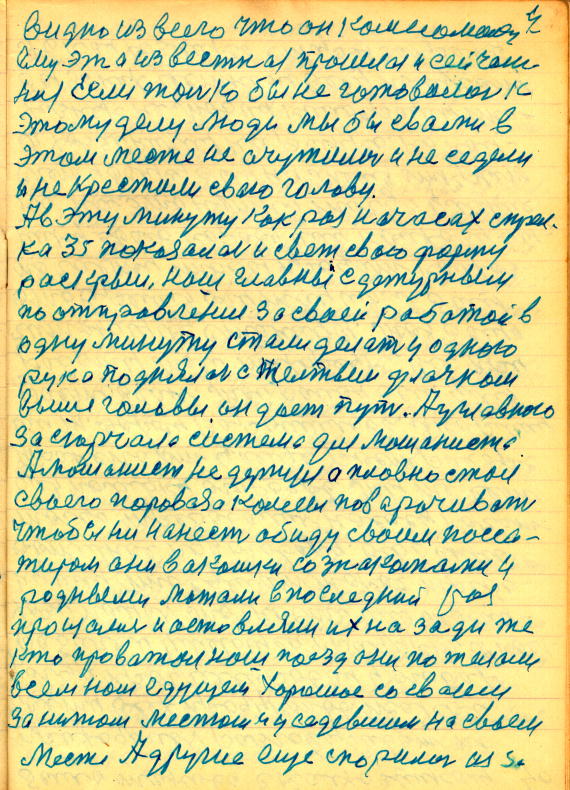 Видно из всего что он комсомолец
Ему эта известная прошлая и сейчаш-
ная Если только бы не готовилас к
этому делу люди мы бы с вами в
этом месте не очутилис и не седели
и не крестили свою голову.
А в эту минуту как раз на часах стрел-
ка 35 показалас и свет свою форму
раскрыл, наш главный с дежурным
по отправлении за своей работой в
одну минуту стали делат у одного
рука поднялас с желтым флачком
выше головы он дает пут. А у главного
засвырчала система для машиниста
А машинист не держил а пловно стал
своего паровоза колеса поварочиват
чтобы ни нанест обиду своим посса-
жиром они в вокошки со знакомыми и
родными махали в последний раз
прощалис и оставляли их на зади же
кто проважал наш поезд они пожелали
всем нам едущем хорошое со своем
занитом местом и уседевшим на своем
месте А другие еще спорилис из за